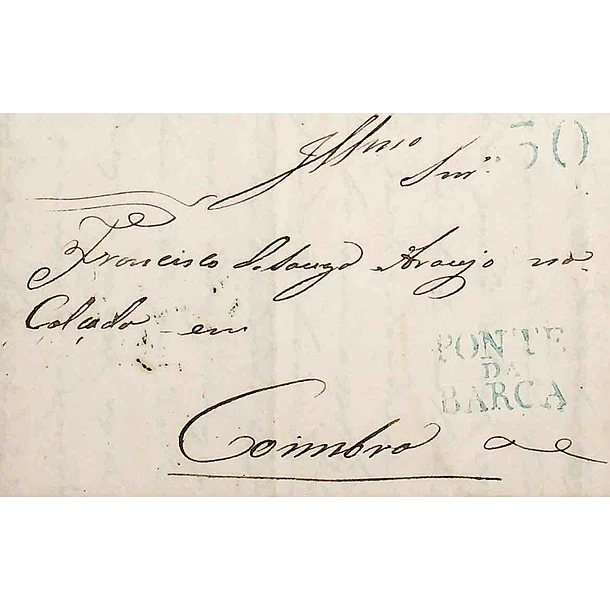 Illmo 50
Snr.
Francisco de Souza Araujo na
Calçada em
PONTE
DA
BARCA
Coimbra